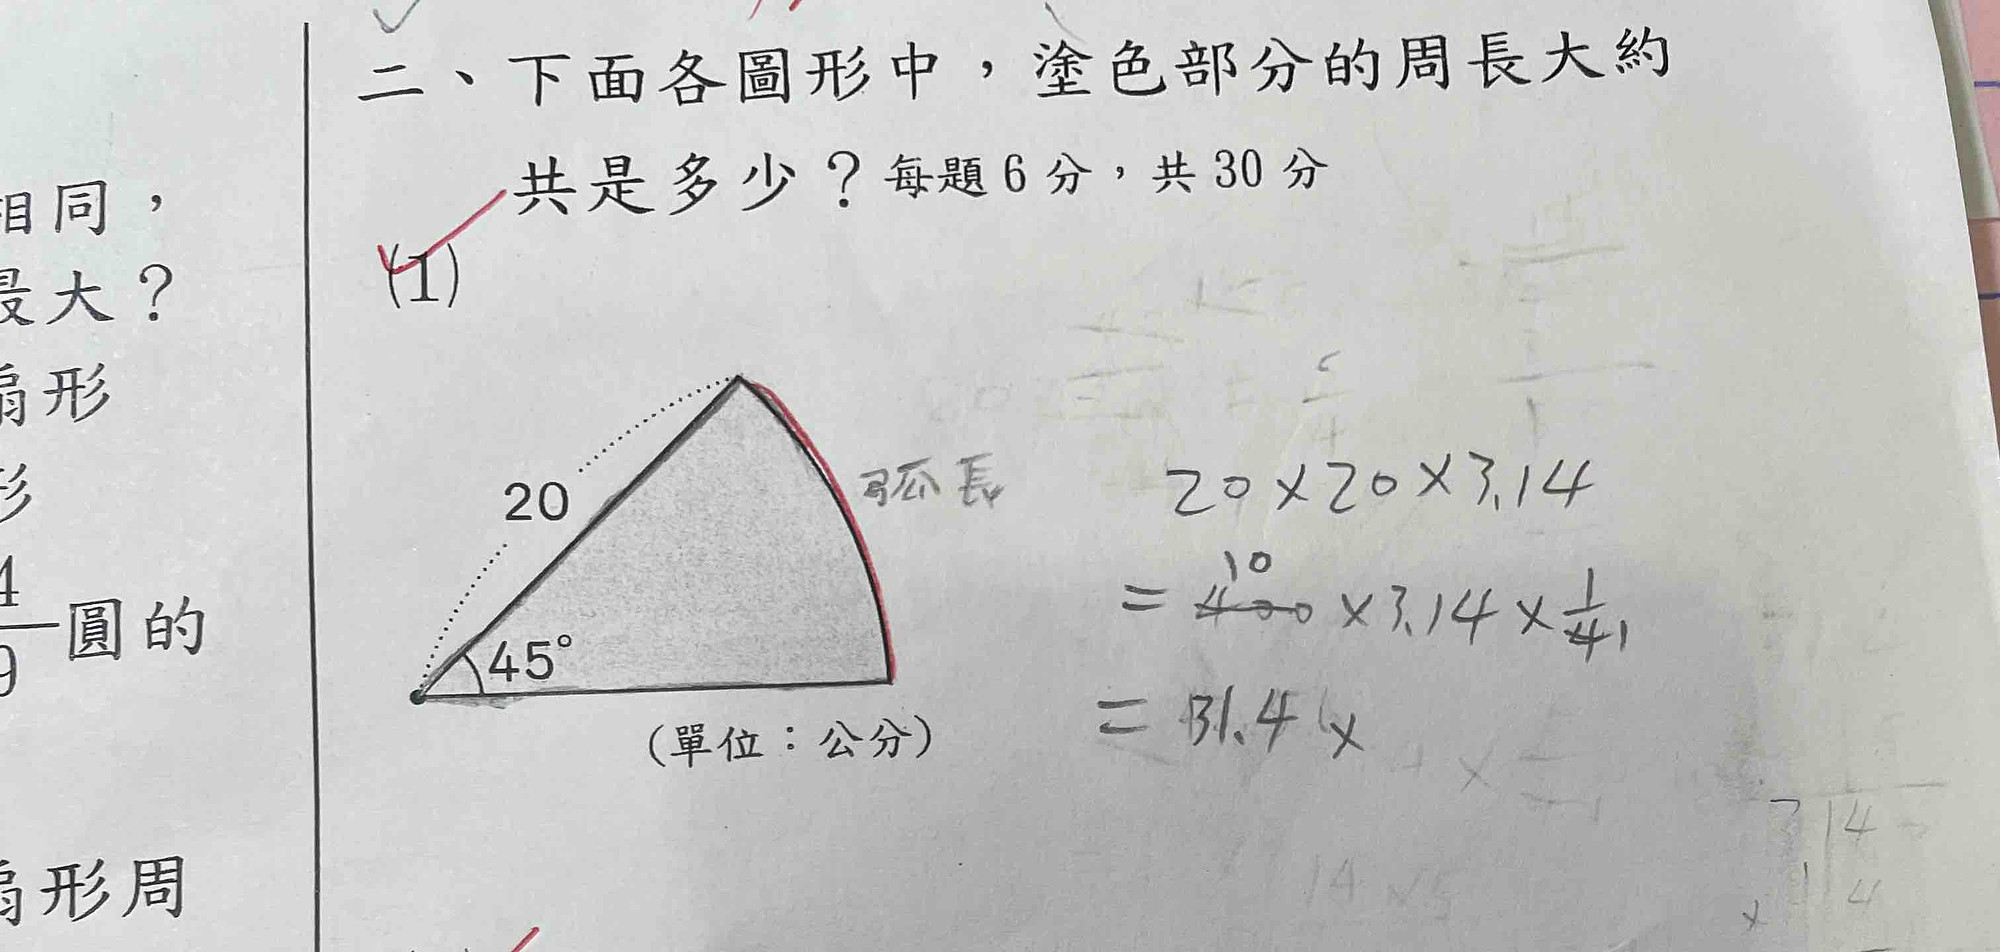 二、下面各圖形中，塗色部分的周長大約
共是多少？每題6分，共30分
(1)
20
45°
弧長
(單位：公分)
20×20×3.14
= 10
400×3.14×1/4 1
= 31.4 ×
相同，
最大？
扇形
形
4/9 圓的
扇形周
314